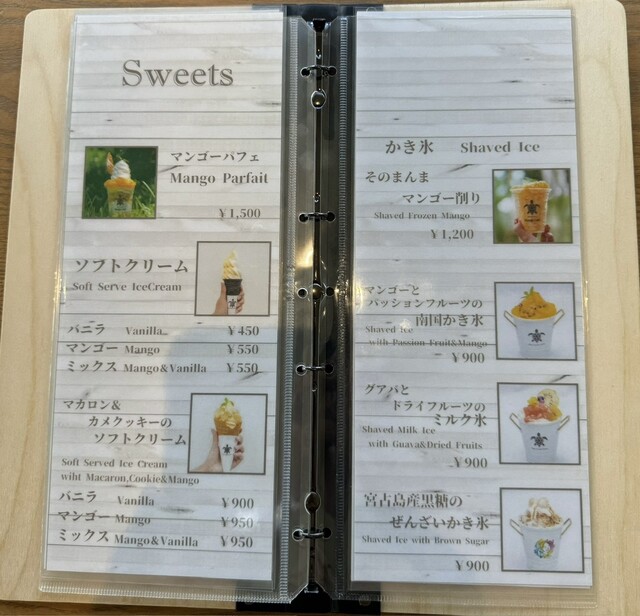 Sweets
マンゴーパフェ
Mango Parfait
¥1,500
ソフトクリーム
Soft Serve IceCream
バニラ Vanilla ¥450
マンゴー Mango ¥550
ミックス Mango&Vanilla ¥550
マカロン&
カメクッキーの
ソフトクリーム
Soft Served Ice Cream
wiht Macaron,Cookie&Mango
バニラ Vanilla ¥900
マンゴー Mango ¥950
ミックス Mango&Vanilla ¥950
かき氷 Shaved Ice
そのまんま
マンゴー削り
Shaved Frozen Mango
¥1,200
マンゴーと
パッションフルーツの
南国かき氷
Shaved Ice
with Passion Fruit&Mango
¥900
グアバと
ドライフルーツの
ミルク氷
Shaved Milk Ice
with Guava&Dried Fruits
¥900
宮古島産黒糖の
ぜんざいかき氷
Shaved Ice with Brown Sugar
¥900